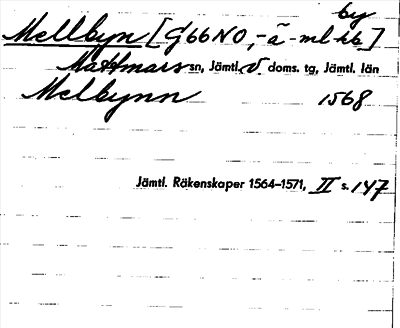 by
Mellbyn [g66NO,-ã-ml kb]
Mattmars sn, Jämtl. V. doms. tg, Jämtl. län
Melbynn 1568
Jämtl. Räkenskaper 1564–1571, II s. 147